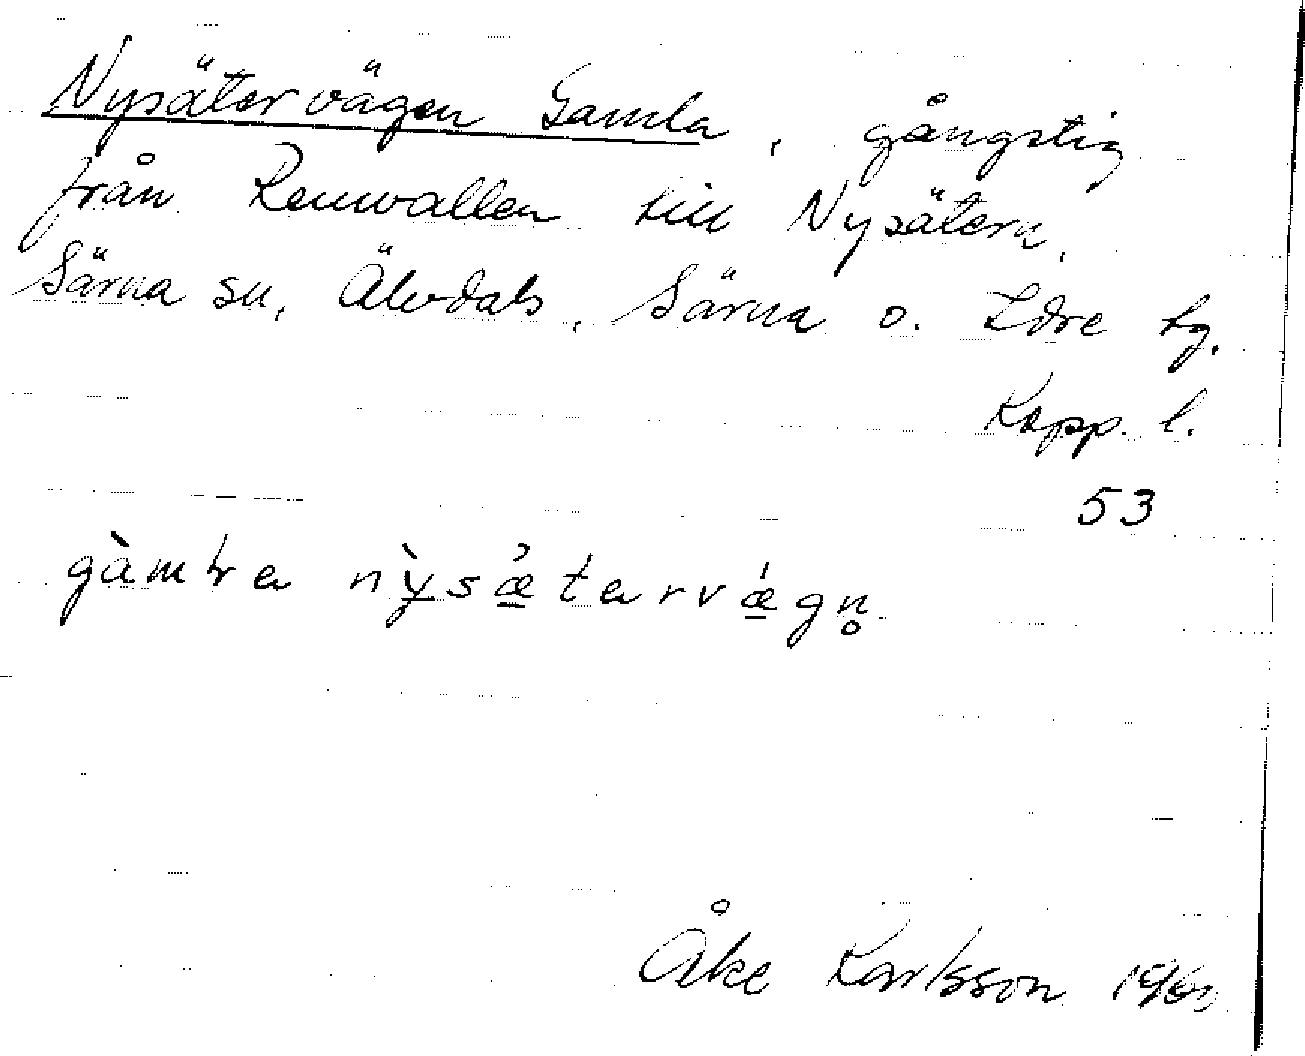 Nysätervägen Gamla, gångstig
från Remvallen till Nysätern,
Särna sn, Älvdals, Särna o. Idre tg.
Kopp. l.
53
gàmɫra nỳsæ̀tarvǽgn̥
Åke Karlsson